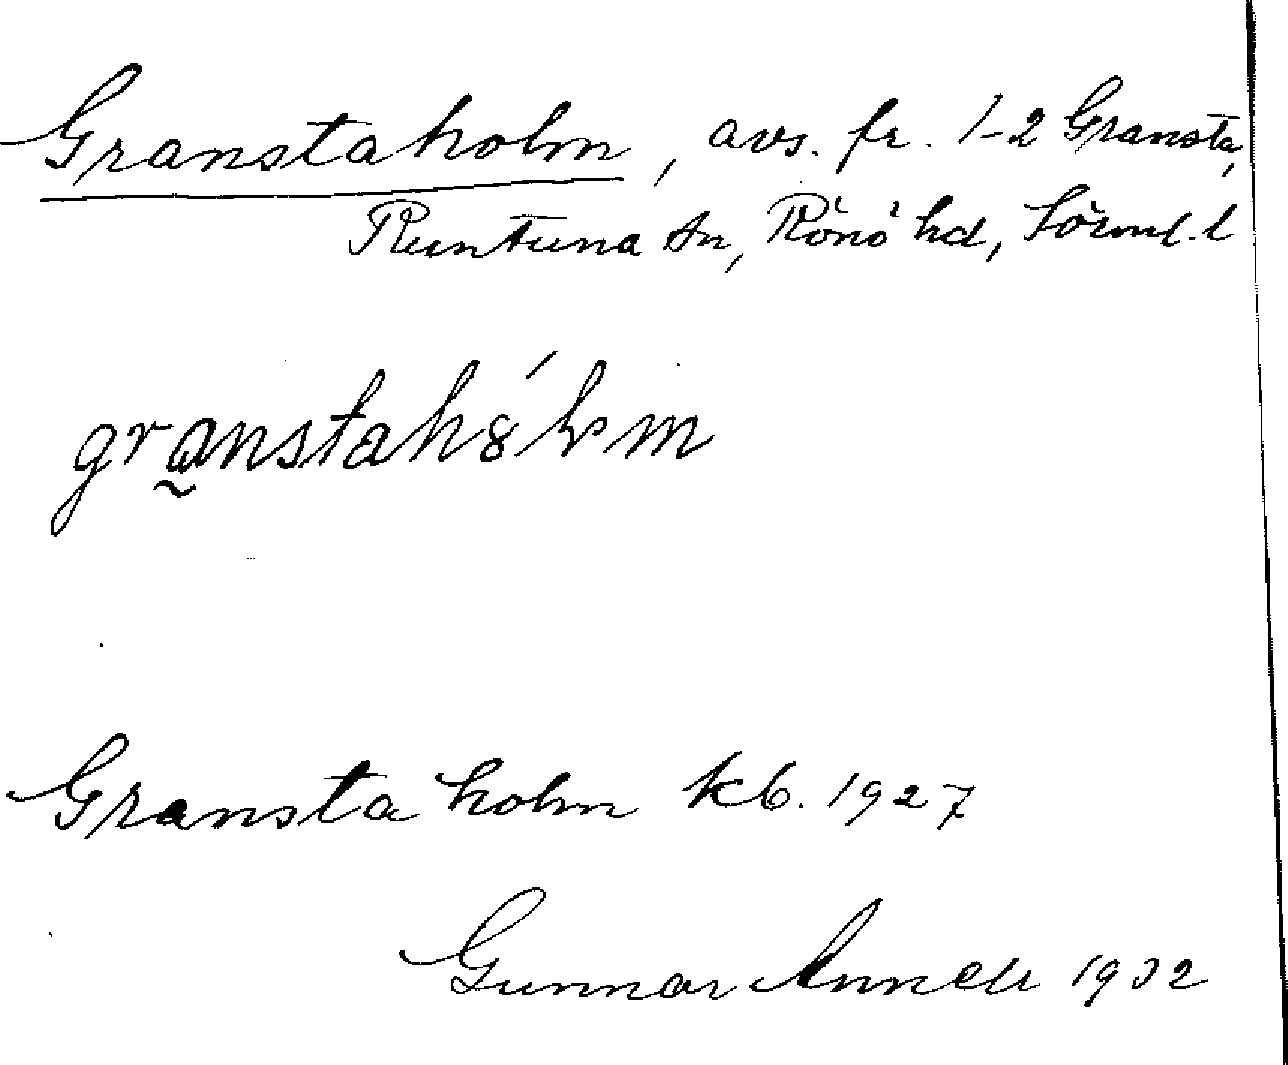 Granstaholm, avs. fr. 1-2 Gransta,
Runtuna sn, Rönö hd, Sörml. l
Gransta holm kb. 1927
Gunnar Annell 1932